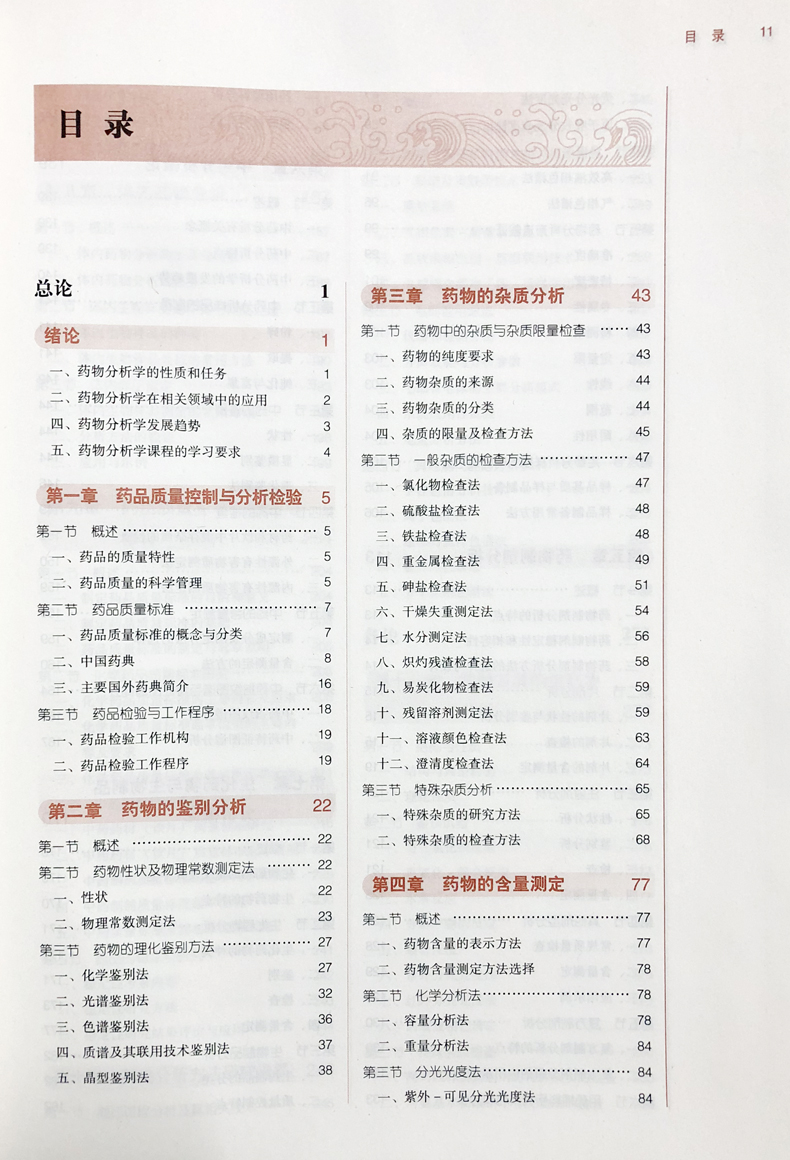 目 录 11
目 录
总论 1
绪论 1
一、药物分析学的性质和任务 1
二、药物分析学在相关领域中的应用 2
四、药物分析学发展趋势 3
五、药物分析学课程的学习要求 4
第一章 药品质量控制与分析检验 5
第一节 概述 …………………………… 5
一、药品的质量特性 5
二、药品质量的科学管理 5
第二节 药品质量标准 ………………… 7
一、药品质量标准的概念与分类 7
二、中国药典 8
三、主要国外药典简介 16
第三节 药品检验与工作程序 …………… 18
一、药品检验工作机构 19
二、药品检验工作程序 19
第二章 药物的鉴别分析 22
第一节 概述 …………………………… 22
第二节 药物性状及物理常数测定法 ……… 22
一、性状 22
二、物理常数测定法 23
第三节 药物的理化鉴别方法 …………… 27
一、化学鉴别法 27
二、光谱鉴别法 32
三、色谱鉴别法 36
四、质谱及其联用技术鉴别法 37
五、晶型鉴别法 38
第三章 药物的杂质分析 43
第一节 药物中的杂质与杂质限量检查 …… 43
一、药物的纯度要求 43
二、药物杂质的来源 44
三、药物杂质的分类 44
四、杂质的限量及检查方法 45
第二节 一般杂质的检查方法 …………… 47
一、氯化物检查法 47
二、硫酸盐检查法 48
三、铁盐检查法 48
四、重金属检查法 49
五、砷盐检查法 51
六、干燥失重测定法 54
七、水分测定法 56
八、炽灼残渣检查法 58
九、易炭化物检查法 59
十、残留溶剂测定法 59
十一、溶液颜色检查法 63
十二、澄清度检查法 64
第三节 特殊杂质分析 ………………… 65
一、特殊杂质的研究方法 65
二、特殊杂质的检查方法 68
第四章 药物的含量测定 77
第一节 概述 …………………………… 77
一、药物含量的表示方法 77
二、药物含量测定方法选择 78
第二节 化学分析法 …………………… 78
一、容量分析法 78
二、重量分析法 84
第三节 分光光度法 …………………… 84
一、紫外-可见分光光度法 84